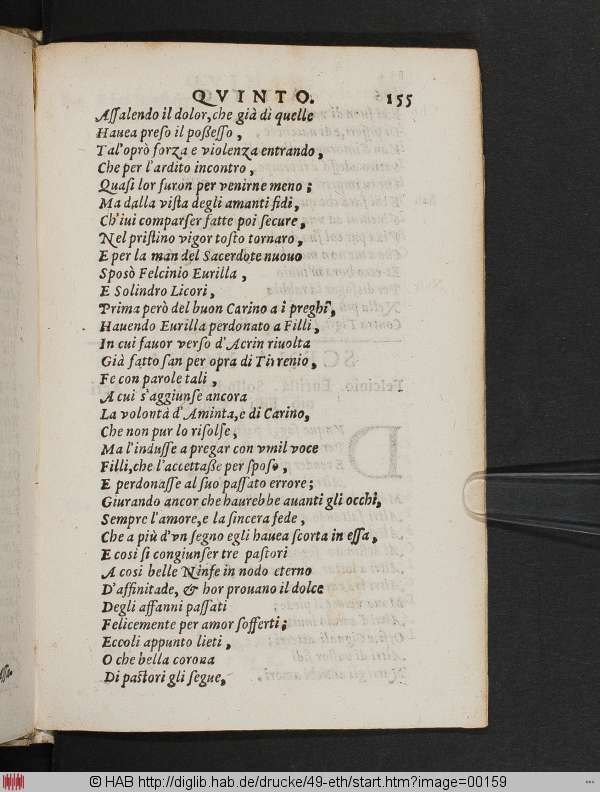 QVINTO. 155
Aſſalendo il dolor, che già di quelle
Hauea preſo il poßeſſo,
Tal'oprò forza e violenza entrando,
Che per l'ardito incontro,
Quaſi lor furon per venirne meno;
Ma dalla viſta degli amanti fidi,
Ch'iui comparſer fatte poi ſecure,
Nel priſtino vigor toſto tornaro,
E per la man del Sacerdote nuouo
Sposò Felcinio Eurilla,
E Solindro Licori,
Prima però del buon Carino a i preghi,
Hauendo Eurilla perdonato a Filli,
In cui fauor verſo d'Acrin riuolta
Già fatto ſan per opra di Tirrenio,
Fe con parole tali,
A cui s'aggiunſe ancora
La volontà d'Aminta, e di Carino,
Che non pur lo riſolſe,
Ma l'induſſe a pregar con vmil voce
Filli, che l'accettaße per ſpoſo,
E perdonaſſe al ſuo paſſato errore;
Giurando ancor che haurebbe auanti gli occhi,
Sempre l'amore, e la ſincera fede,
Che a più d'vn ſegno egli hauea ſcorta in eſſa,
E cosi ſi congiunſer tre paſtori
A cosi belle Ninfe in nodo eterno
D'affinitade, & hor prouano il dolce
Degli affanni paſſati
Felicemente per amor ſofferti;
Eccoli appunto lieti,
O che bella corona
Di paſtori gli ſegue,
© HAB http://diglib.hab.de/drucke/49-eth/start.htm?image=00159